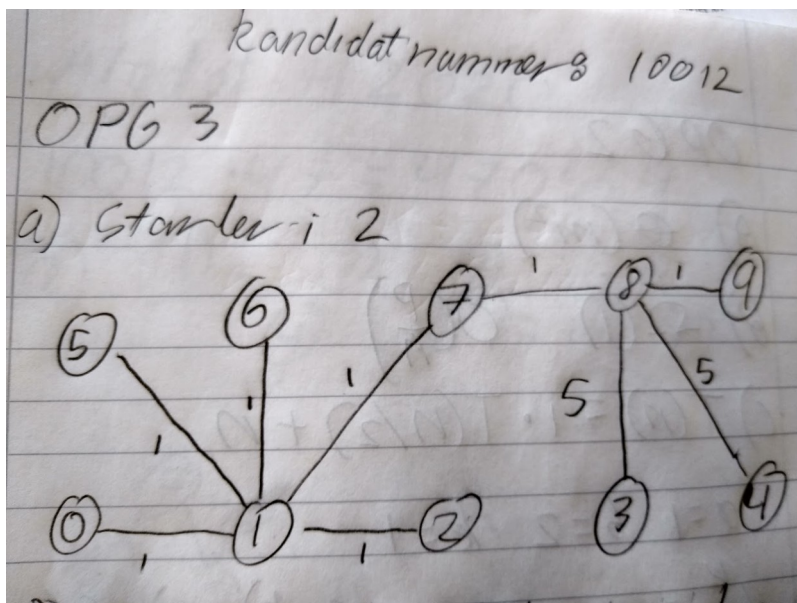 kandidatnummer: 10012
OPG 3
a) Starter i 2
6 7 1 8 1 9
5
1 1 5 5
1
0 1 1 1 2 3 4